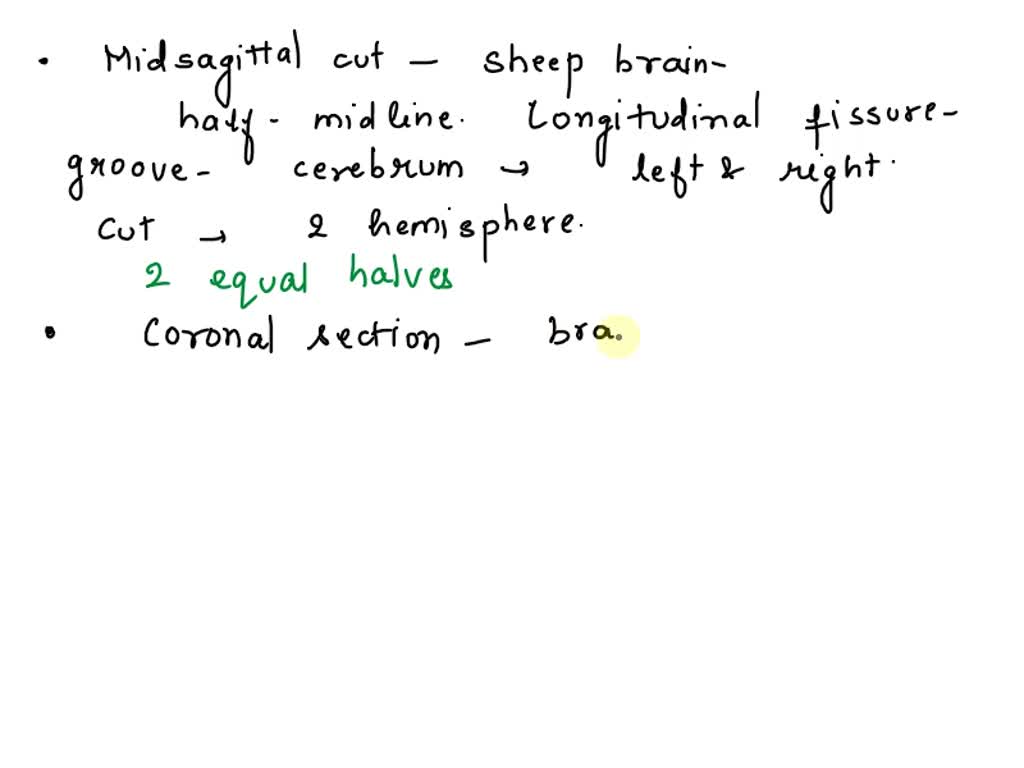 • Midsagittal cut - sheep brain-
half - midline. Longitudinal fissure-
groove - cerebrum → left & right.
cut → 2 hemisphere.
2 equal halves
• Coronal section - bra.